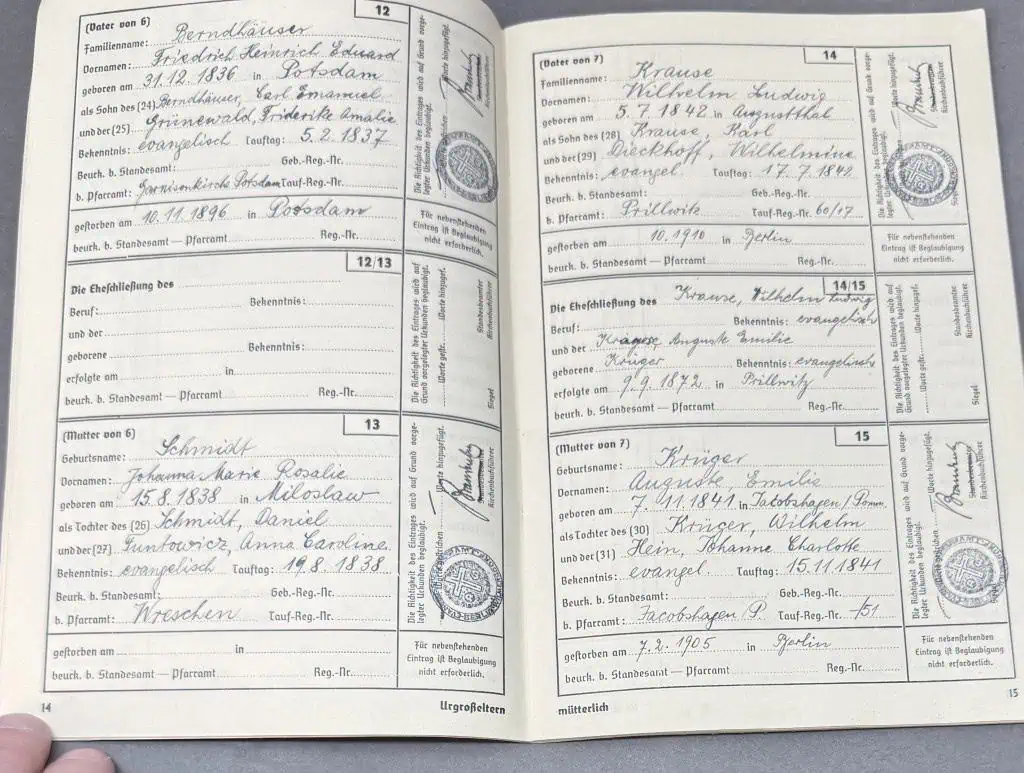 12
(Vater von 6)
Familienname: Berndhäuser
Vornamen: Friedrich Heinrich Eduard
geboren am 31.12.1836 in Potsdam
als Sohn des (24) Berndhäuser, Carl Emanuel
und der (25) Grünewald, Friderike Amalie
Bekenntnis: evangelisch Tauftag: 5.2.1837
Beurk. b. Standesamt: Geb.-Reg.-Nr.
b. Pfarramt: Garnisonkirche Potsdam Tauf-Reg.-Nr.
gestorben am 10.11.1896 in Potsdam
beurk. b. Standesamt — Pfarramt Reg.-Nr.
Die Richtigkeit des Eintrages wird auf Grund vorge-
legter Urkunden beglaubigt.
Worte hinzugefügt.
Standesbeamter
Kirchenbuchführer
Für nebenstehenden
Eintrag ist Beglaubigung
nicht erforderlich.
12/13
Die Eheschließung des
Beruf: Bekenntnis:
und der
geborene Bekenntnis:
erfolgte am in
beurk. b. Standesamt — Pfarramt Reg.-Nr.
Die Richtigkeit des Eintrages wird auf
Grund vorgelegter Urkunden beglaubigt.
Worte gestr. Worte hinzugef.
Siegel
Standesbeamter
Kirchenbuchführer
13
(Mutter von 6)
Geburtsname: Schmidt
Vornamen: Johanna Marie Rosalie
geboren am 15.8.1838 in Miloslaw
als Tochter des (26) Schmidt, Daniel
und der (27) Tuntowicz, Anna Caroline
Bekenntnis: evangelisch Tauftag: 19.8.1838
Beurk. b. Standesamt: Geb.-Reg.-Nr.
b. Pfarramt: Wreschen Tauf-Reg.-Nr.
gestorben am in
beurk. b. Standesamt — Pfarramt Reg.-Nr.
Die Richtigkeit des Eintrages wird auf Grund vorge-
legter Urkunden beglaubigt.
Worte gestrichen Worte hinzugefügt.
Standesbeamter
Kirchenbuchführer
Für nebenstehenden
Eintrag ist Beglaubigung
nicht erforderlich.
14 Urgroßeltern
14
(Vater von 7)
Familienname: Krause
Vornamen: Wilhelm Ludwig
geboren am 5.7.1842 in Augustthal
als Sohn des (28) Krause, Karl
und der (29) Dieckhoff, Wilhelmine
Bekenntnis: evangel. Tauftag: 17.7.1842
Beurk. b. Standesamt: Geb.-Reg.-Nr.
b. Pfarramt: Prillwitz Tauf-Reg.-Nr. 60/17
gestorben am 10.1910 in Berlin
beurk. b. Standesamt — Pfarramt Reg.-Nr.
Die Richtigkeit des Eintrages wird auf Grund vorge-
legter Urkunden beglaubigt.
Worte hinzugefügt.
Siegel
Standesbeamter
Kirchenbuchführer
Für nebenstehenden
Eintrag ist Beglaubigung
nicht erforderlich.
14/15
Die Eheschließung des Krause, Wilhelm Ludwig
Beruf: Bekenntnis: evangelisch
und der Auguste Emilie
geborene Krüger Bekenntnis: evangelisch
erfolgte am 9.9.1872 in Prillwitz
beurk. b. Standesamt — Pfarramt Reg.-Nr.
Die Richtigkeit des Eintrages wird auf
Grund vorgelegter Urkunden beglaubigt.
Worte gestr. Worte hinzugef.
Siegel
Standesbeamter
Kirchenbuchführer
15
(Mutter von 7)
Geburtsname: Krüger
Vornamen: Auguste, Emilie
geboren am 7.11.1841 in Jacobshagen/Pomm.
als Tochter des (30) Krüger, Wilhelm
und der (31) Hein, Johanne Charlotte
Bekenntnis: evangel. Tauftag: 15.11.1841
Beurk. b. Standesamt: Geb.-Reg.-Nr.
b. Pfarramt: Jacobshagen/P. Tauf-Reg.-Nr. 51
gestorben am 7.2.1905 in Berlin
beurk. b. Standesamt — Pfarramt Reg.-Nr.
Die Richtigkeit des Eintrages wird auf Grund vorge-
legter Urkunden beglaubigt.
Worte gestrichen Worte hinzugefügt.
Standesbeamter
Kirchenbuchführer
Für nebenstehenden
Eintrag ist Beglaubigung
nicht erforderlich.
mütterlich 15